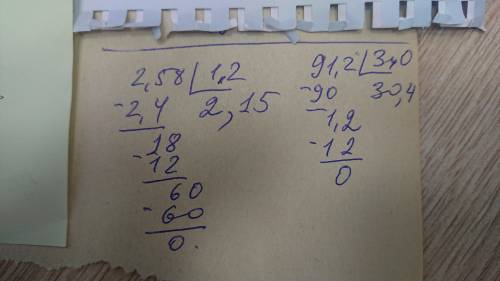 2,58 1,2
-2,4 2,15
18
-12
60
-60
0.
91,2 3,0
-90 30,4
-1,2
-12
0